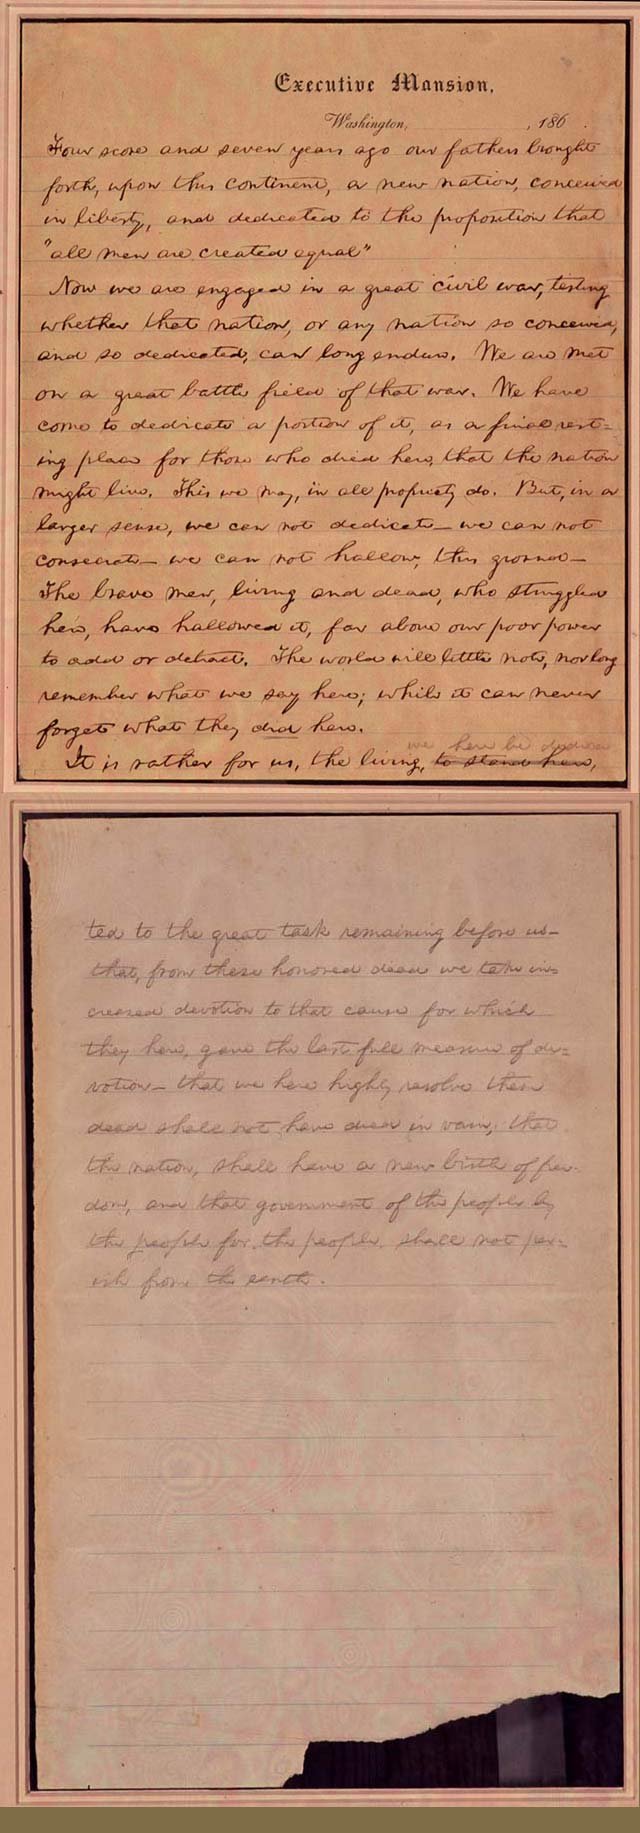 Executive Mansion,
Washington, , 186 .
Four score and seven years ago our fathers brought
forth, upon this continent, a new nation, conceived
in liberty, and dedicated to the proposition that
"all men are created equal"
Now we are engaged in a great civil war, testing
whether that nation, or any nation so conceived,
and so dedicated, can long endure. We are met
on a great battle field of that war. We have
come to dedicate a portion of it, as a final rest=
ing place for those who died here, that the nation
might live. This we may, in all propriety do. But, in a
larger sense, we can not dedicate — we can not
consecrate — we can not hallow, this ground —
The brave men, living and dead, who struggled
here, have hallowed it, far above our poor power
to add or detract. The world will little note, nor long
remember what we say here; while it can never
forget what they did here.
we here be dedica
It is rather for us, the living, to stand here,
ted to the great task remaining before us —
that, from these honored dead we take in=
creased devotion to that cause for which
they here, gave the last full measure of de=
votion — that we here highly resolve these
dead shall not have died in vain; that
the nation, shall have a new birth of free=
dom, and that government of the people by
the people for the people, shall not per=
ish from the earth.